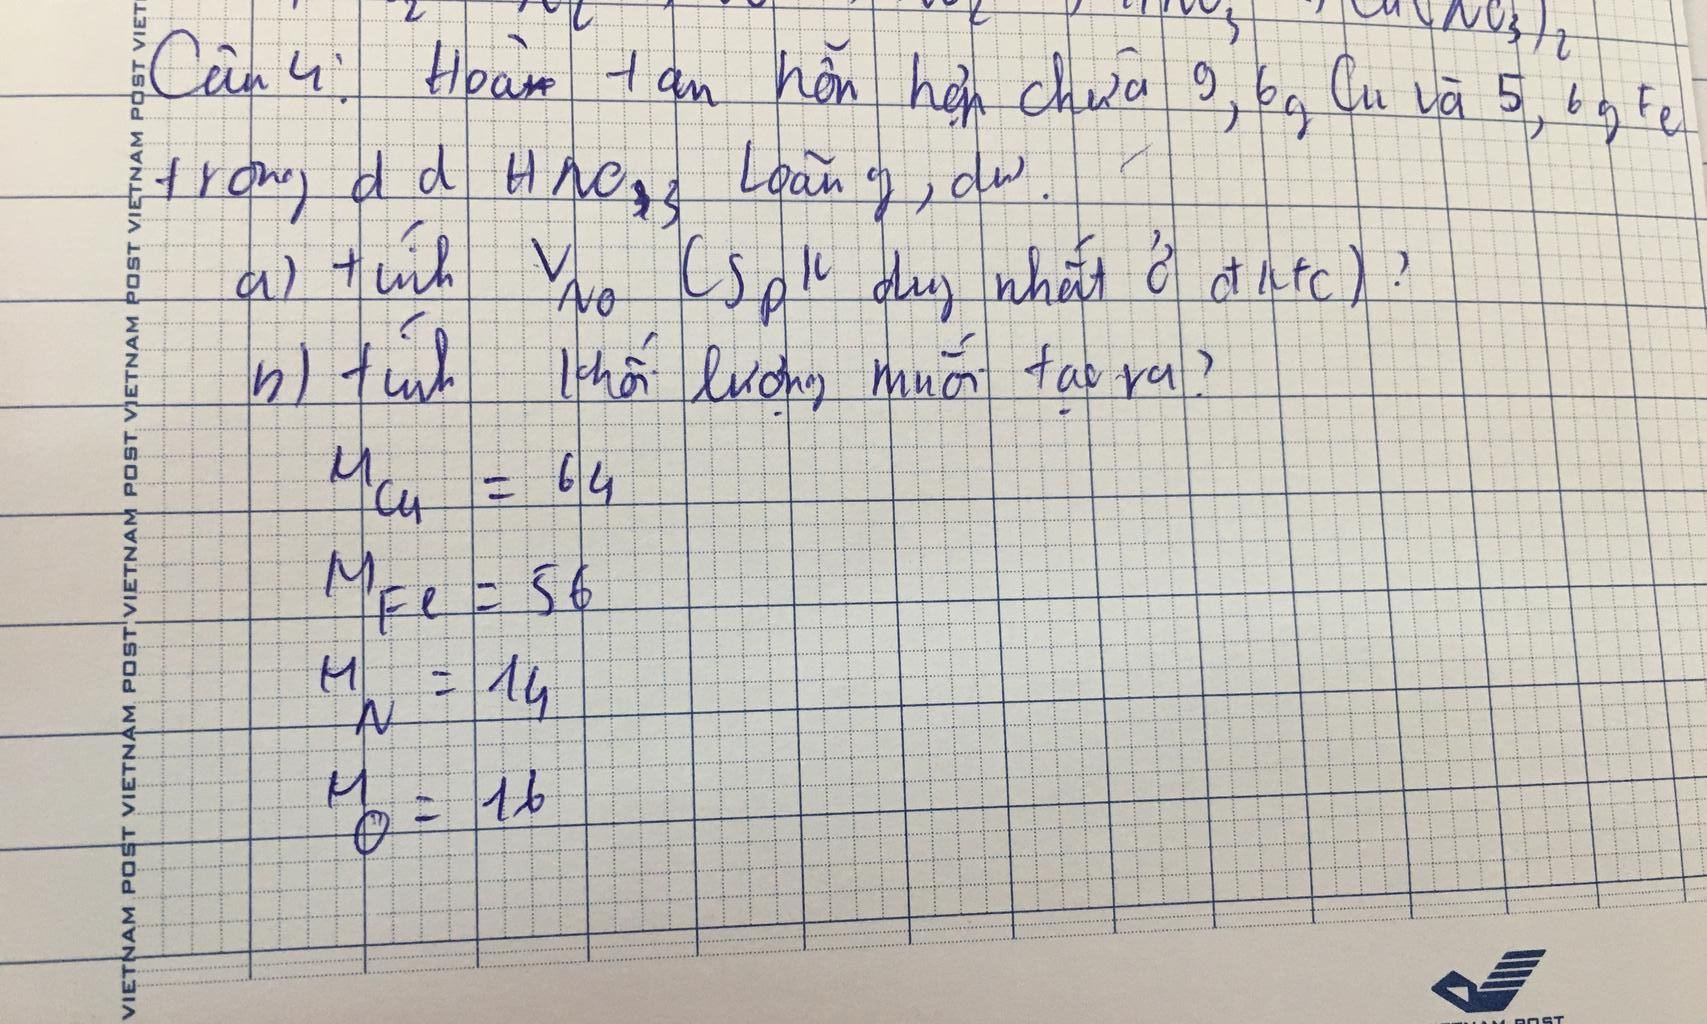 Câu 4: Hoàn tan hỗn hợp chứa 9,6g Cu và 5,6g Fe
trong dd HNO3 loãng, dư.
a) tính VNO (spk duy nhất ở đktc)?
b) tính khối lượng muối tạo ra?
MCu = 64
MFe = 56
MN = 14
MO = 16
VIETNAM POST VIETNAM POST VIETNAM POST VIETNAM POST VIETNAM POST VIETNAM POST VIET